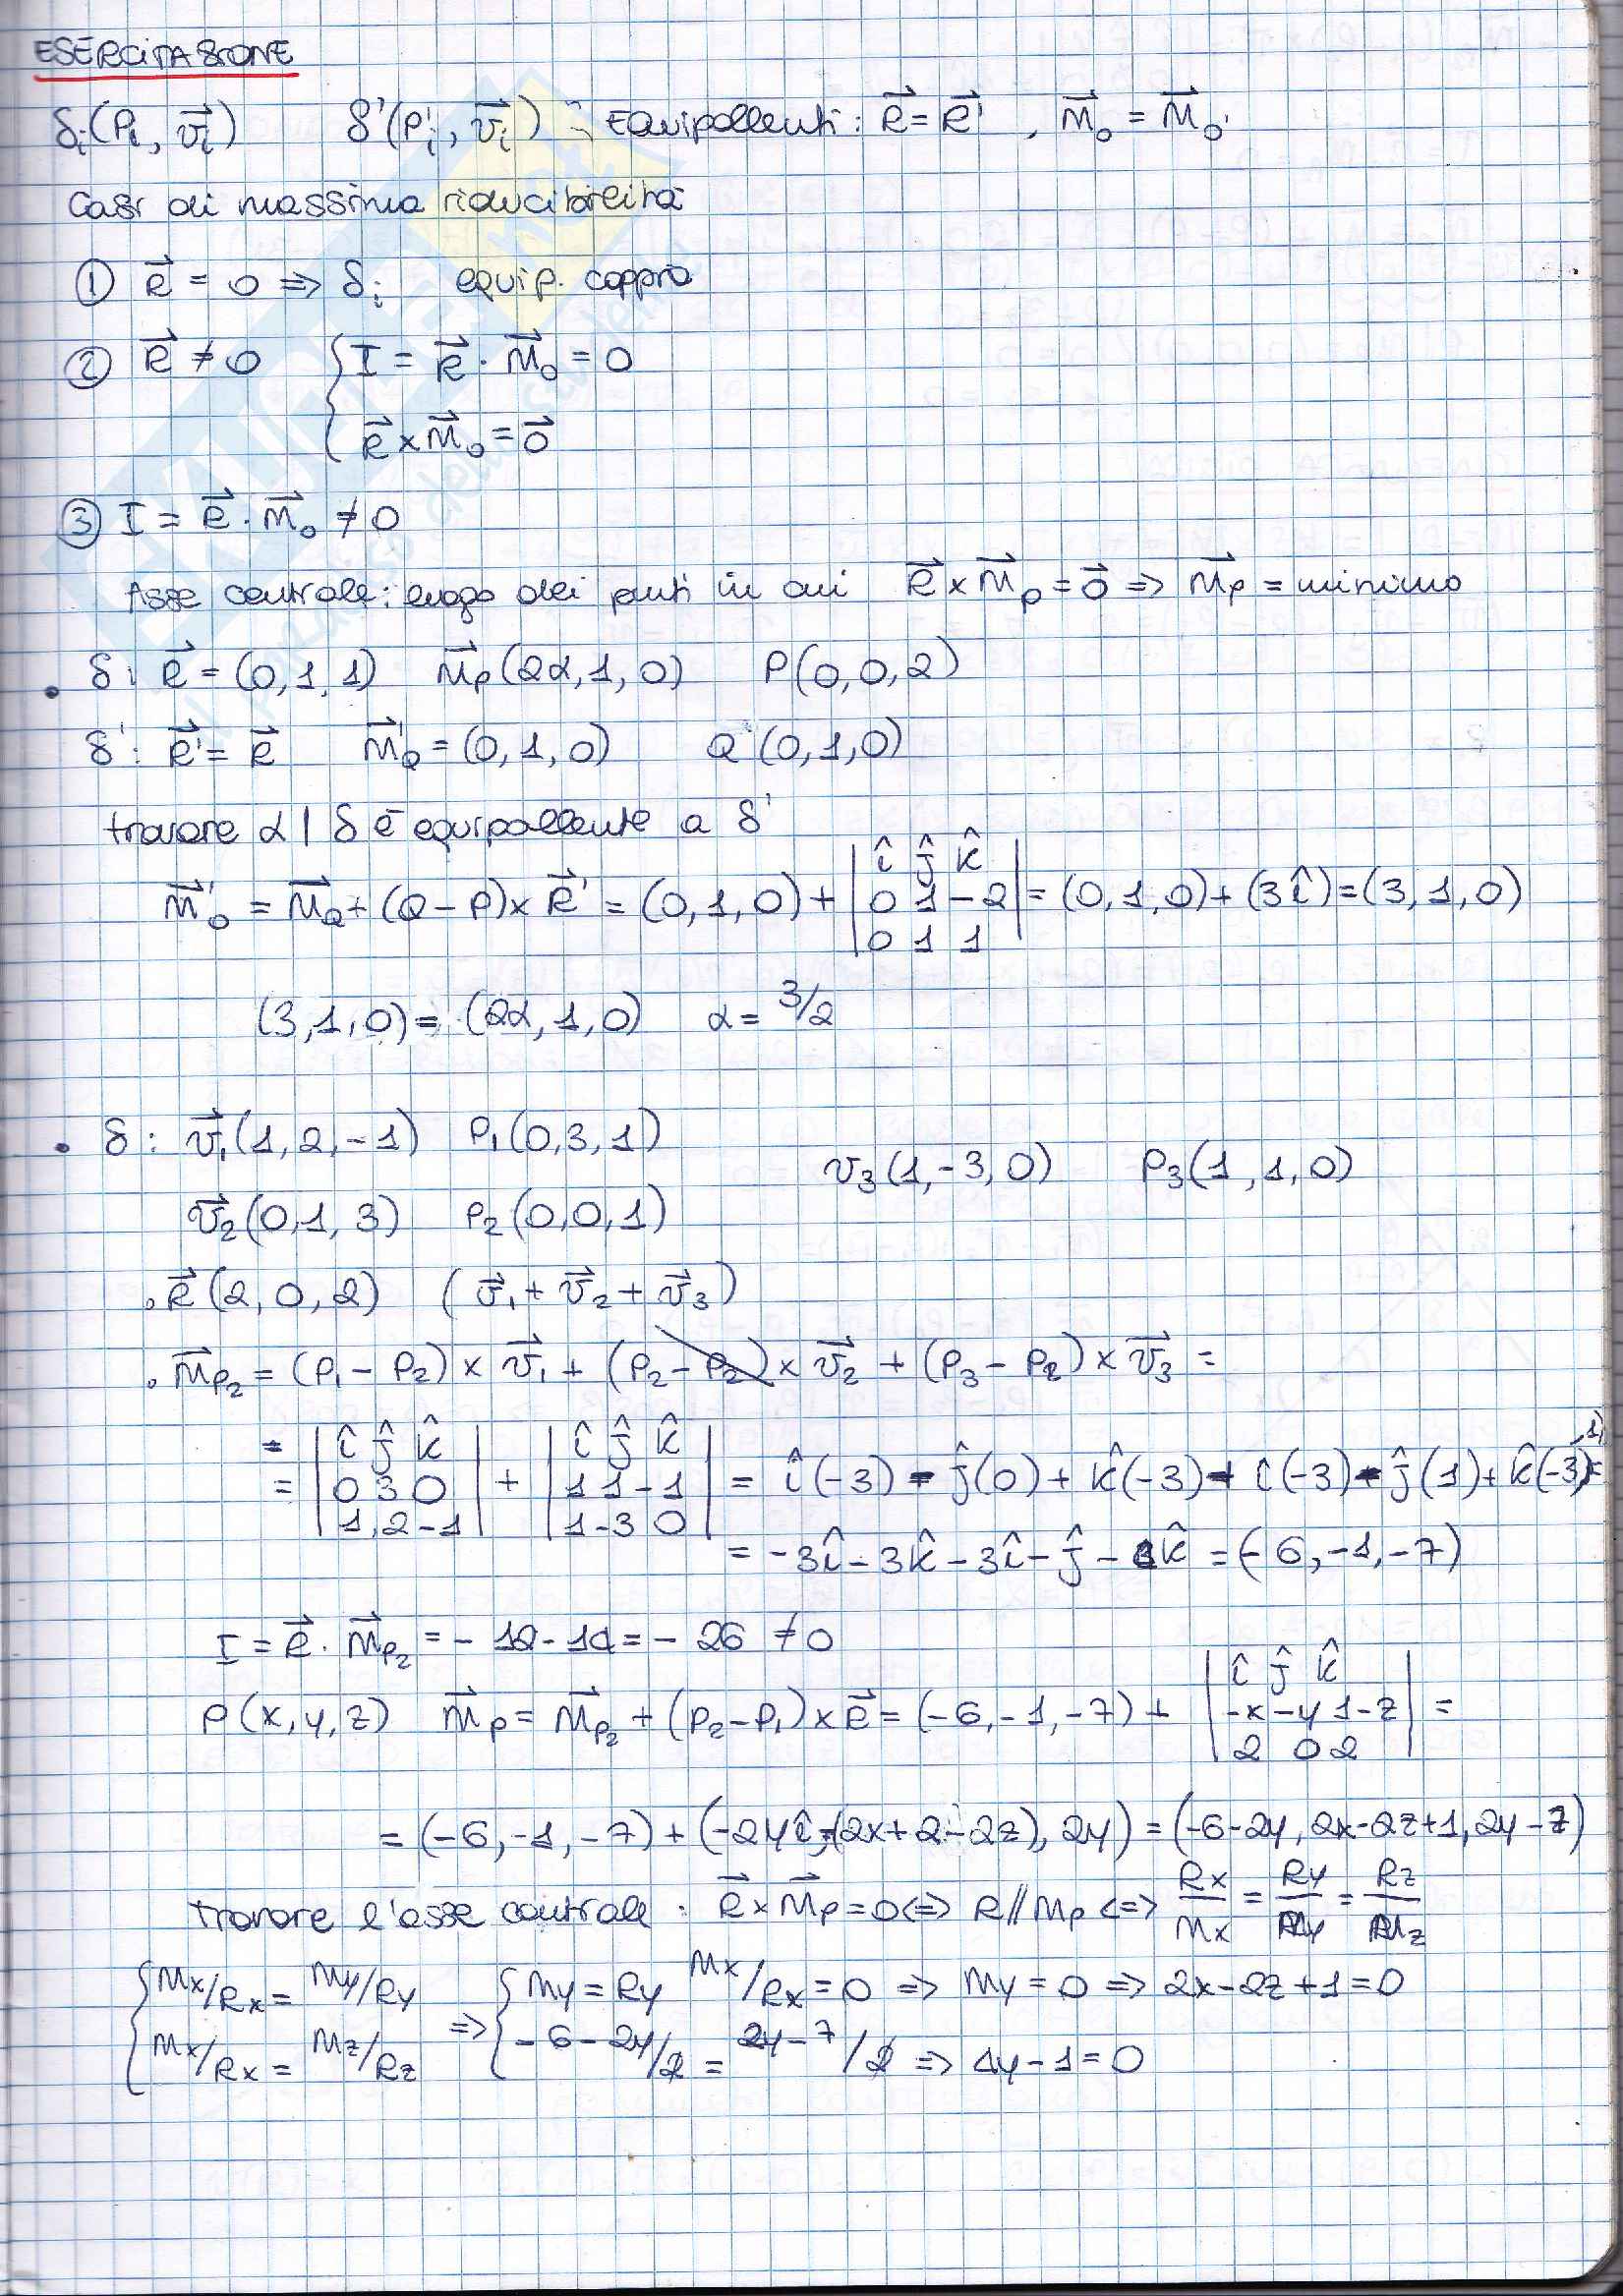 ESERCITAZIONE
δi(Pi, v⃗i) δ'(P'i, v⃗i) Equipollenti: R⃗ = R⃗' , M⃗o = M⃗o'
Casi di massima riducibilità
① R⃗ = 0 => δi equip. coppia
② R⃗ ≠ 0 { I = R⃗ · M⃗o = 0
R⃗ x M⃗o = 0⃗
③ I = R⃗ · M⃗o ≠ 0
Asse centrale: luogo dei punti in cui R⃗ x M⃗p = 0⃗ => M⃗p = minimo
• δ: R⃗ = (0,1,1) M⃗p (2α,1,0) P(0,0,2)
δ': R⃗' = R⃗ M⃗'Q = (0,1,0) Q (0,1,0)
trovare α | δ è equipollente a δ'
M⃗'o = M⃗Q + (Q-P) x R⃗' = (0,1,0) + | î ĵ k̂ | 0 1 -2 | 0 1 1 | = (0,1,0) + (3î) = (3,1,0)
(3,1,0) = (2α,1,0) α = 3/2
• δ: v⃗1 (1,2,-1) P1 (0,3,1)
v3 (1,-3,0) P3 (1,1,0)
v⃗2 (0,1,3) P2 (0,0,1)
. R⃗ (2,0,2) (v⃗1 + v⃗2 + v⃗3)
. M⃗P2 = (P1 - P2) x v⃗1 + (P2 - P2) x v⃗2 + (P3 - P2) x v⃗3 =
= | î ĵ k̂ | 0 3 0 | 1, 2 -1 | + | î ĵ k̂ | 1 1 -1 | 1 -3 0 | = î(-3) - ĵ(0) + k̂(-3) + î(-3) - ĵ(1) + k̂(-3-1) =
= -3î - 3k̂ - 3î - ĵ - 4k̂ = (-6,-1,-7)
I = R⃗ · M⃗P2 = -12 - 14 = -26 ≠ 0
P(x,y,z) M⃗p = M⃗P2 + (P2-P1) x R⃗ = (-6,-1,-7) + | î ĵ k̂ | -x -y 1-z | 2 0 2 | =
= (-6,-1,-7) + (-2yî,-(2x+2-2z), 2y) = (-6-2y, 2x-2z+1, 2y-7)
trovare l'asse centrale . R⃗ x M⃗p = 0 <=> R // Mp <=> Rx/Mx = Ry/My = Rz/Mz
{ Mx/Rx = My/Ry => { My = Ry Mx/Rx = 0 => My = 0 => 2x-2z+1=0
Mx/Rx = Mz/Rz -6-2y/2 = 2y-7/2 => 4y-1=0